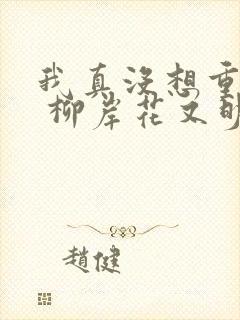 我真没想重
柳岸花又明
赵健